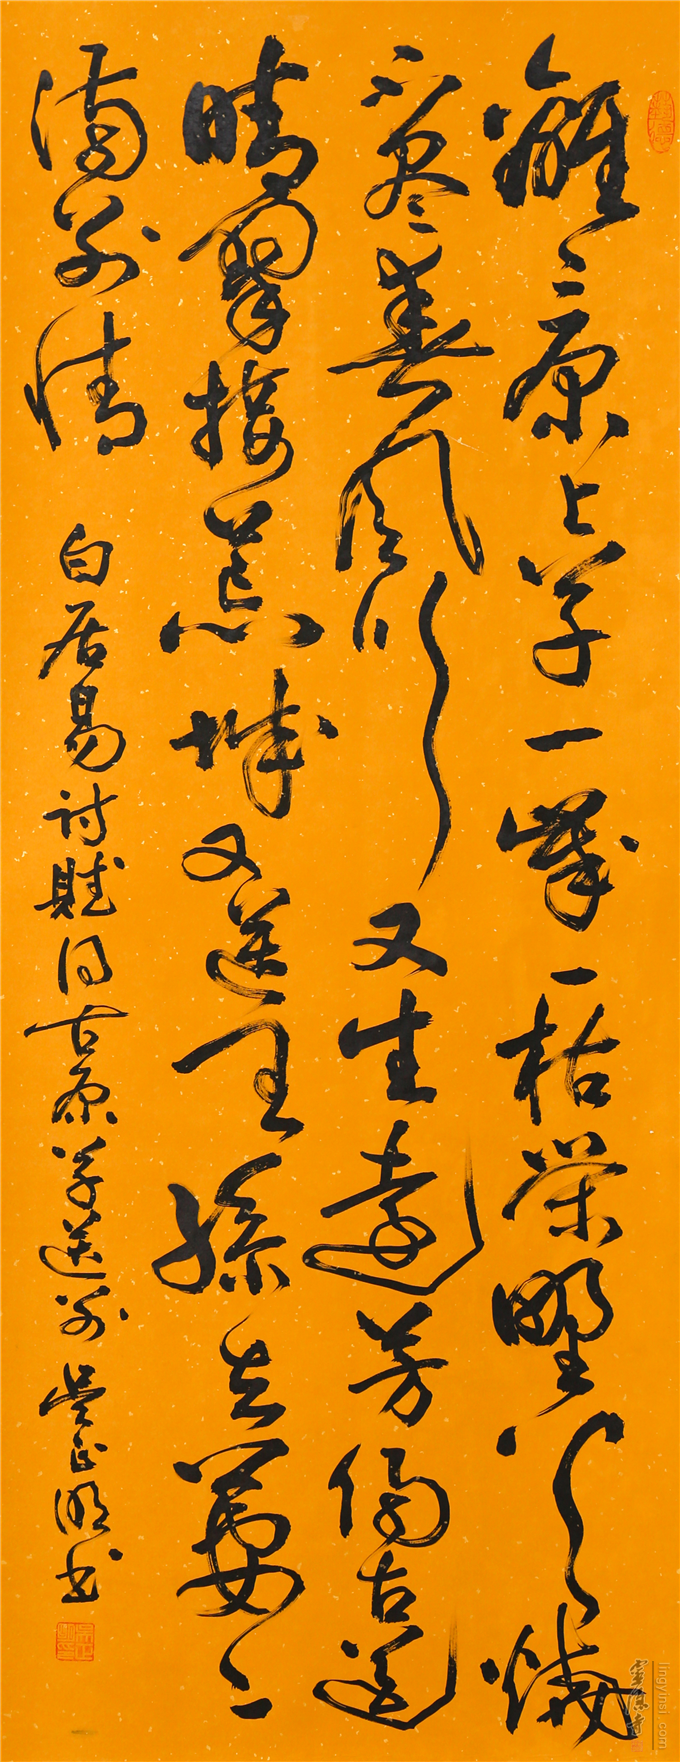 離〻原上草一歲一枯榮野火燒
不尽春風吹又生遠芳侵古道
晴翠接荒城又送王孫去萋〻
滿別情
白居易詩賦得古原草送別 吳正書
靈隱寺
lingyinsi.com